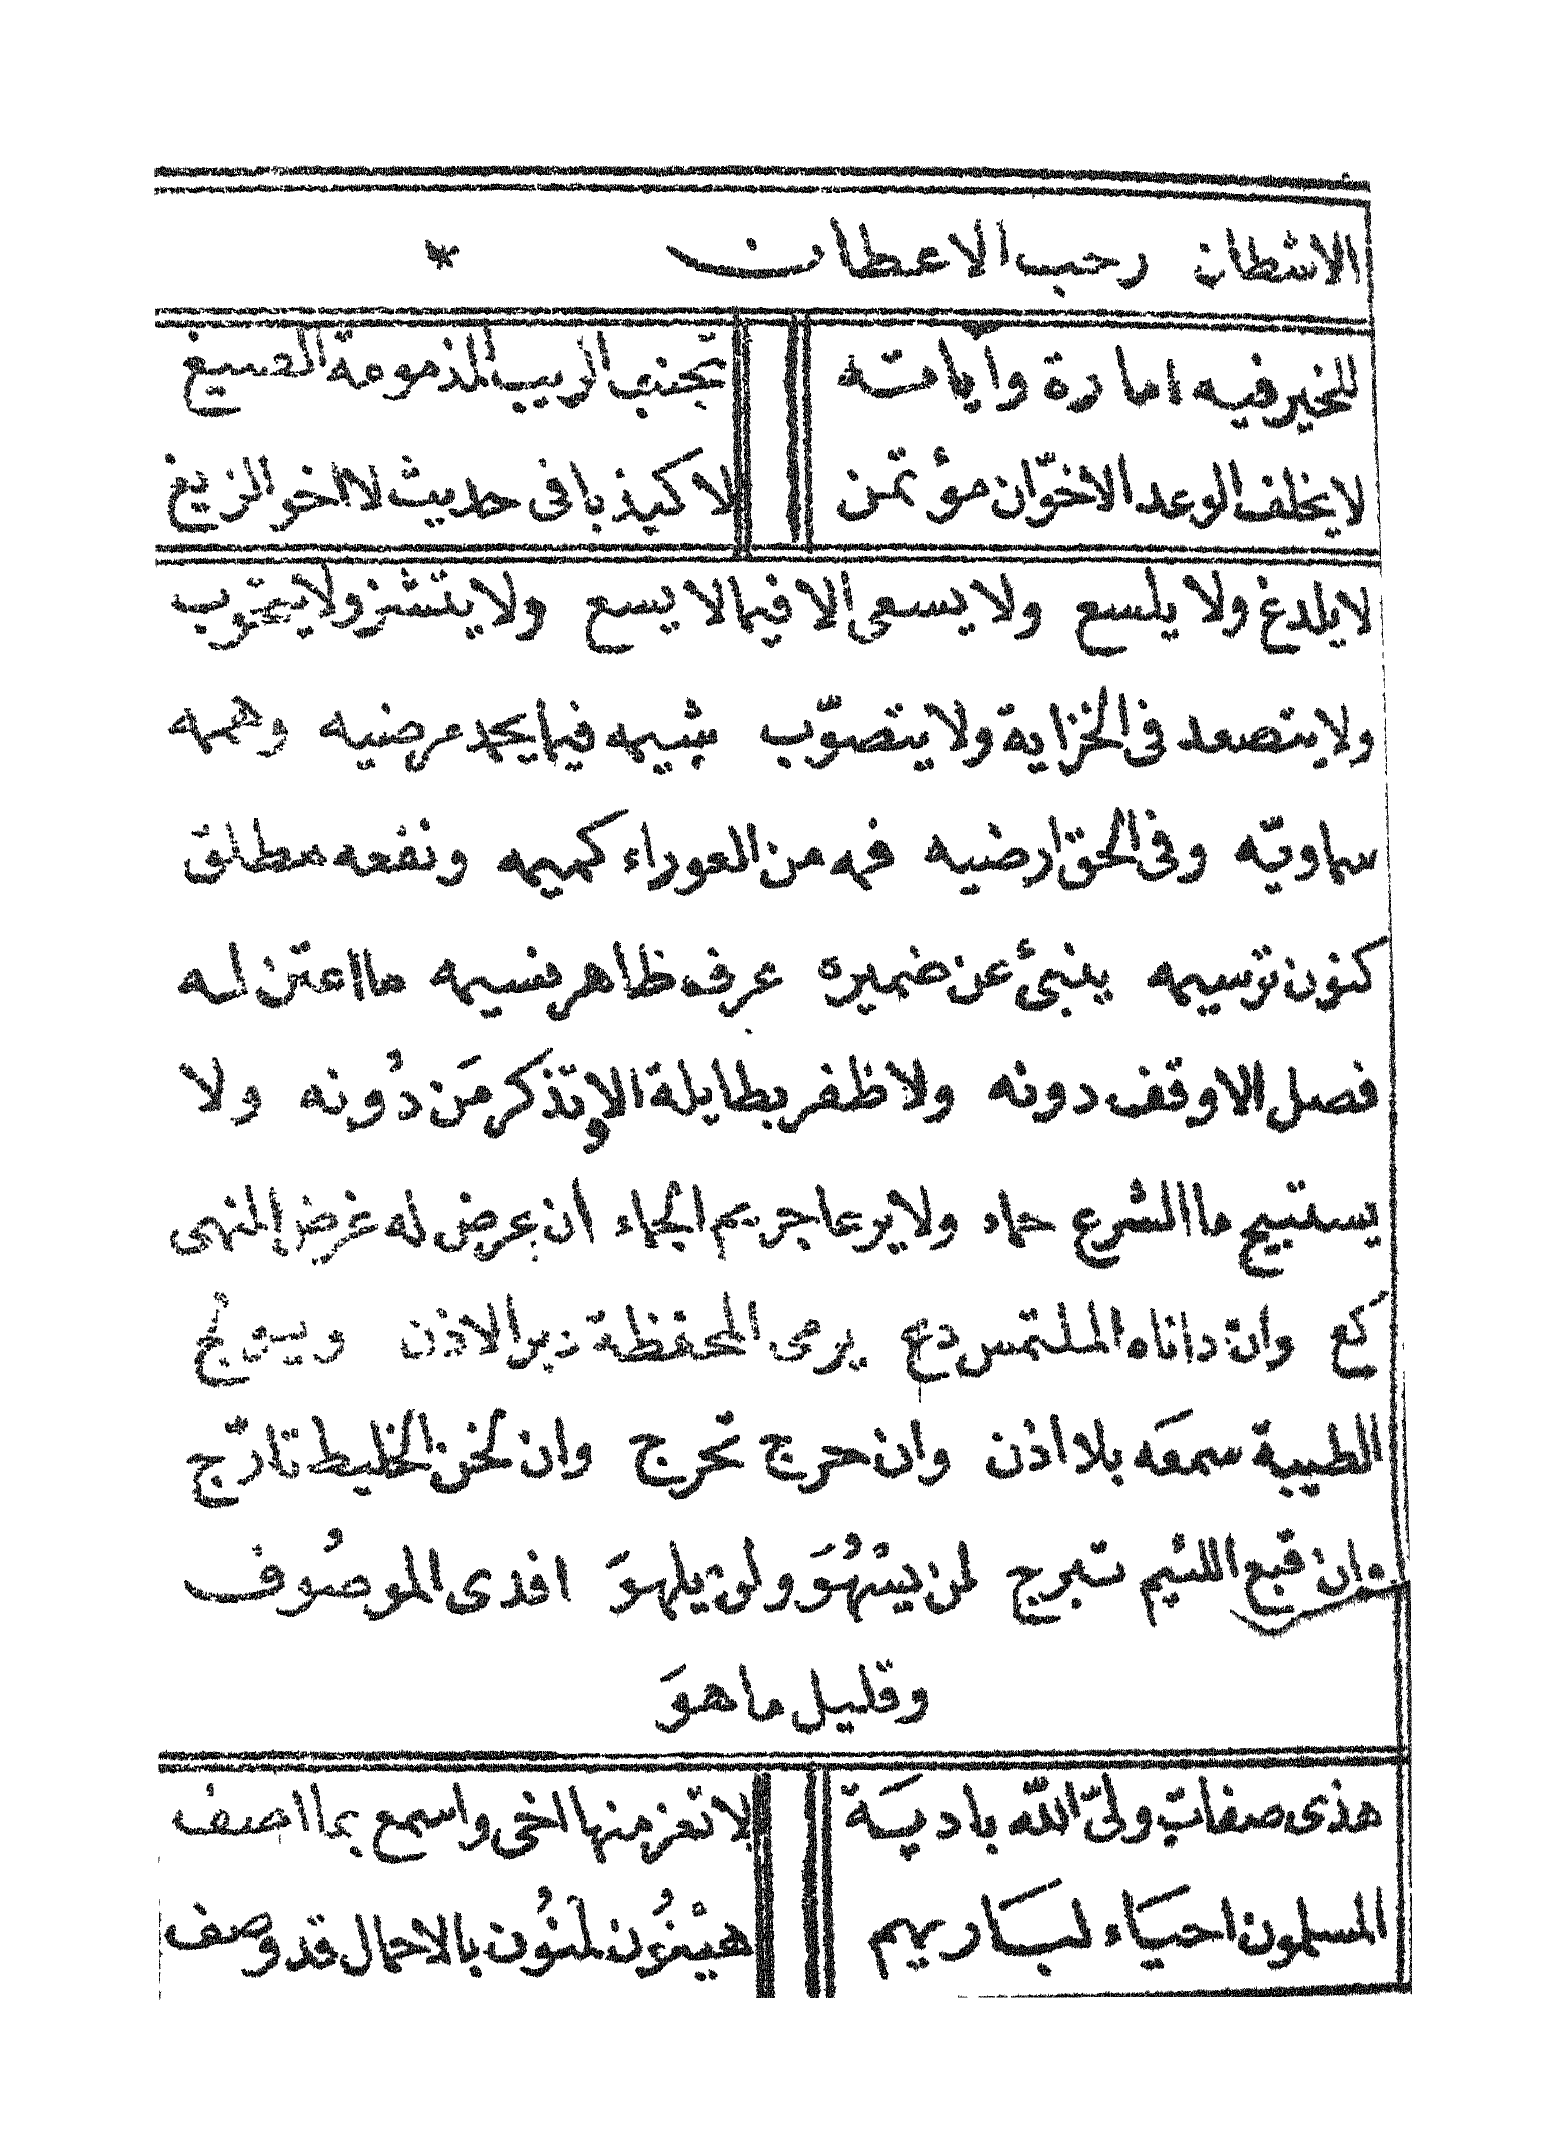 الاشطان رحب الاعطان *
للخير فيه امارة وآيامته تجنب الريب المذمومة الصيغ
لا يخلف الوعد الاخوّان مؤتمن لا كيذبا فى حديث لا اخو الزيغ
لا يلدغ ولا يلسع ولا يسعى الا فيما لا يسع ولا يتشز ولا يتحوب
ولا يتصعد فى الخزاية ولا يتصوّب شيمه فيما يحمد عرضيه وهممه
سماويّه وفى الحق ارضيه فمه من العوراء كميمه ونفعه مطلق
كنون ترسيمه ينبئ عن ضميره عرف ظاهر نسيمه ما اعتن له
فصل الا وقف دونه ولا ظفر بطايلة الا وتذكر مَن دُونه ولا
يستبيح ما الشرع حماه ولا يرعا جريم الجماء ان عرض له غرض المنهى
كع وان داناه الملتمس دع يرمى المحفظة دبر الاذن ويسولج
الطيبة سمعَه بلا اذن وان حرج تحرج وان لخن الخليط تارّج
وان قبع اللئيم تبرج لمن يسْهُوَ ولن يلهوَ افذى الموصُوف
وقليل ما هوَ
هذى صفات ولىّ الله باديَة لا تعز منها اخى واسمع بما اصف
المسلمون احيَاء لبَاريهم هيْنُون لمنُون بالاحمال قد وصف